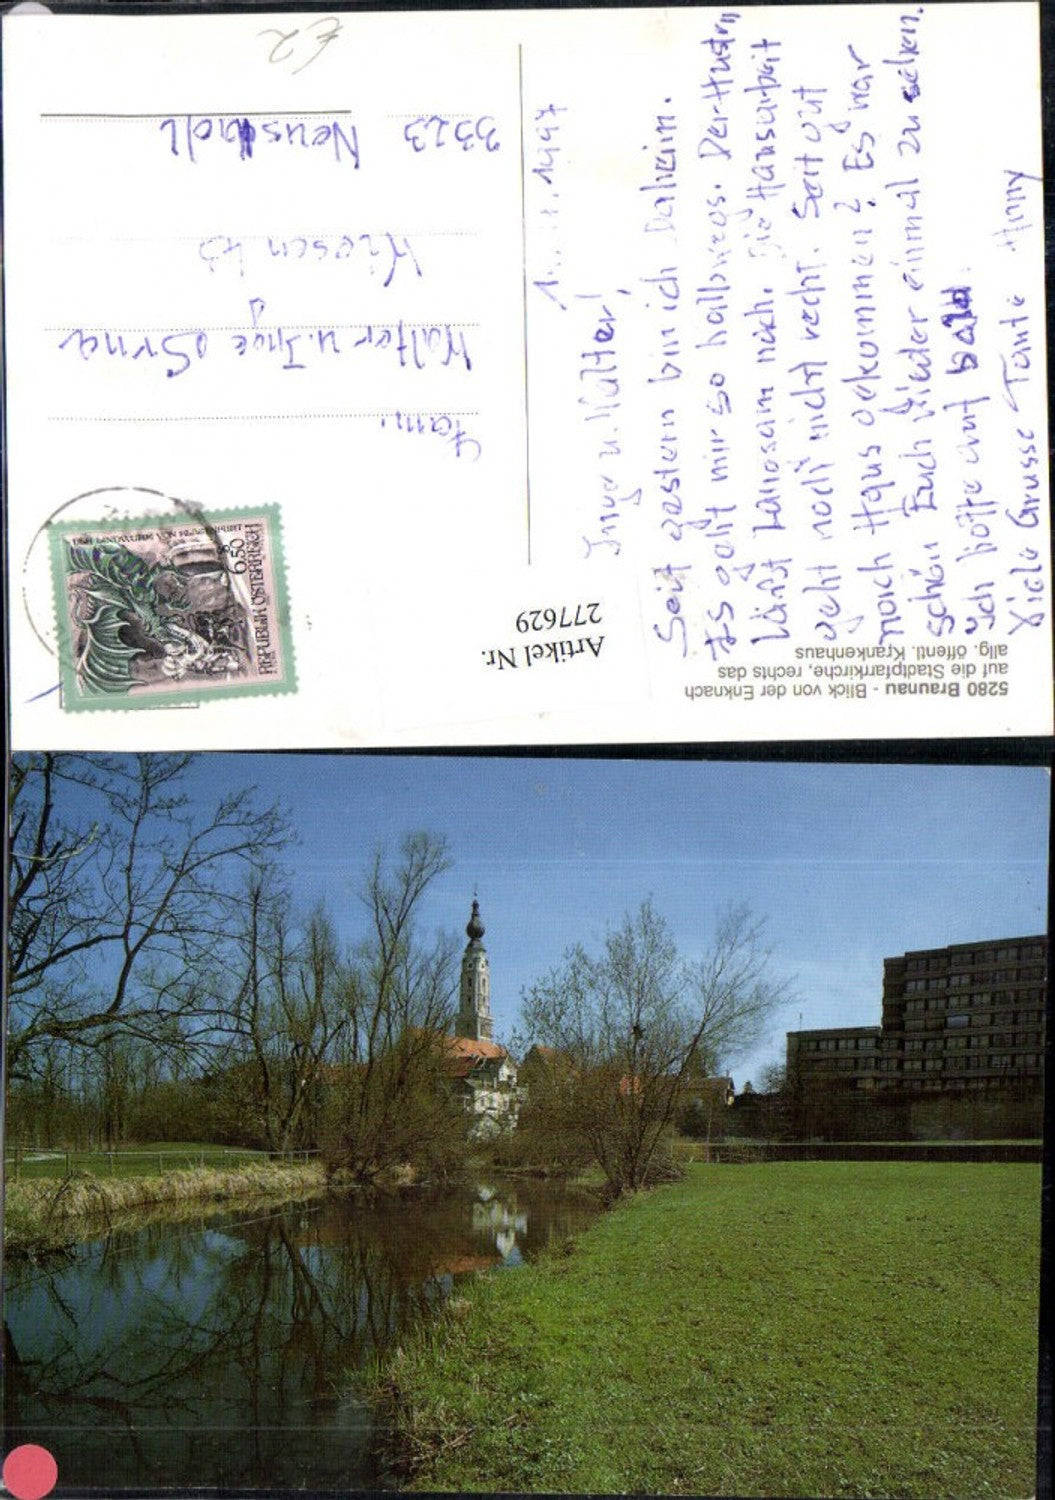 €2
1997
Inge u. Walter!
Seit gestern bin ich Daheim.
Es geht mir so halbwegs. Der Husten
läßt Langsam nach. Die Hausarbeit
geht noch nicht recht. Seit gut
nach Haus gekommen? Es war
schön Euch wieder einmal zu sehen.
Ich hoffe auf bald.
Viele Grüsse Tante
Fam.
Walter u. Inge
3323 Neustadl
REPUBLIK ÖSTERREICH
6.50
Artikel Nr.
277629
5280 Braunau - Blick von der Enknach
auf die Stadtpfarrkirche, rechts das
allg. öffentl. Krankenhaus